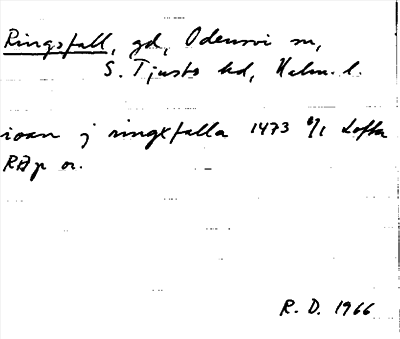 Ringsfall, gd, Odensvi sn,
S. Tjusts hd, Kalm. l.
ioan j ringxfalla 1473 6/1 Lofta
RAp or.
R. D. 1966